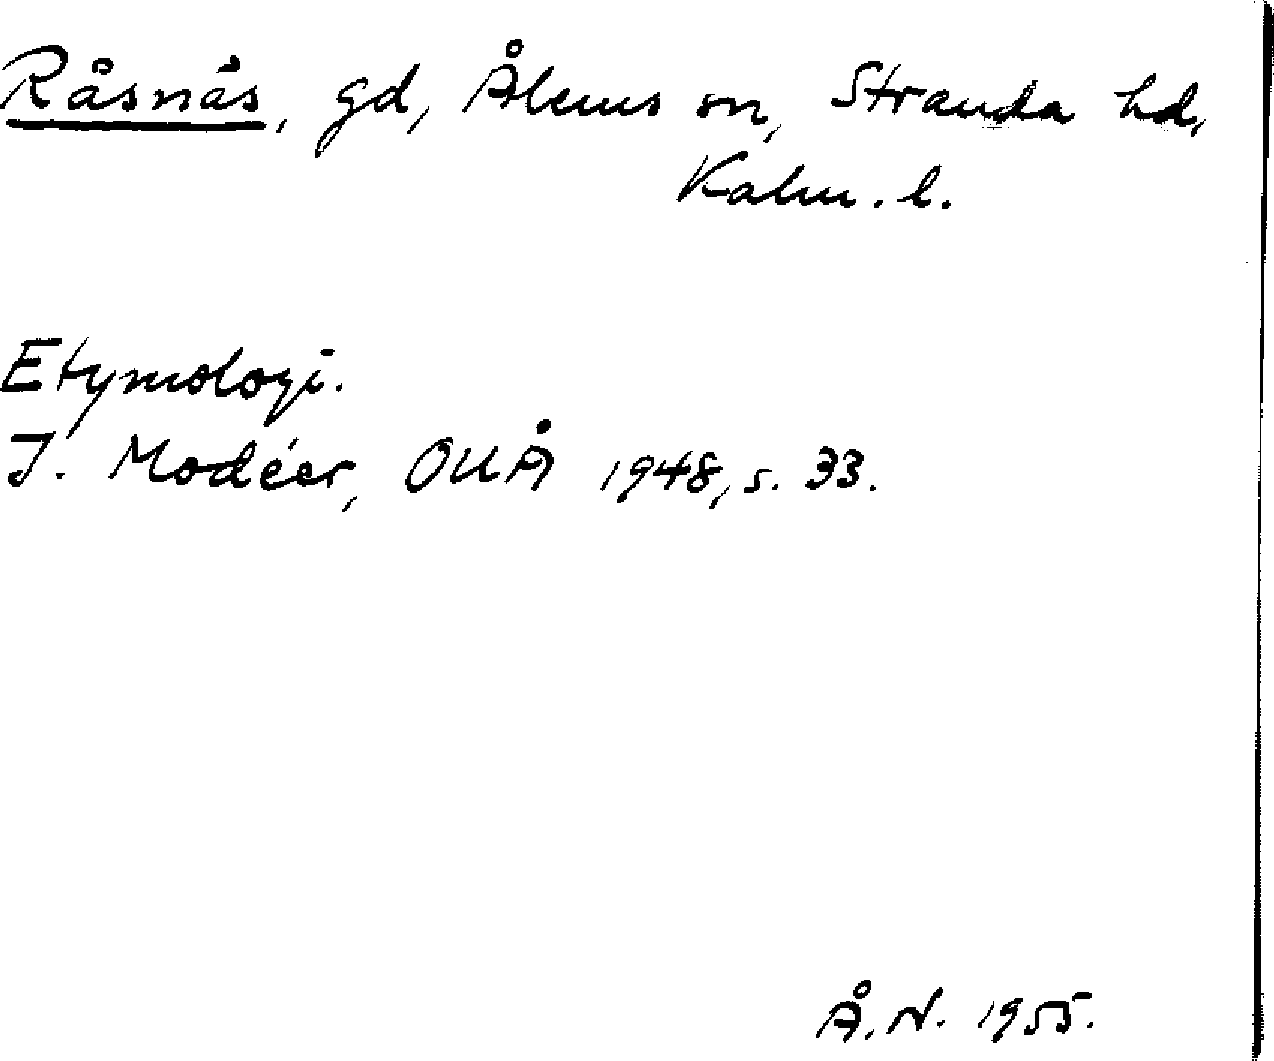 Råsnäs, gd, Ålems sn, Stranda hd,
Kalm. l.
Etymologi.
I. Modéer, OUÅ 1948, s. 33.
Å. N. 1955.